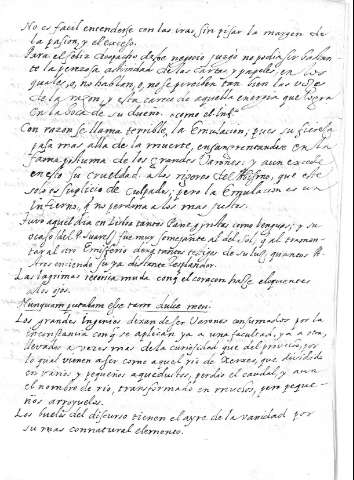 No es facil entenderse con las iras, sin pisar la margen de
la pasion, y el exceso.
Para el feliz despacho deste negocio juzgò no podia ser bastan
te la perezosa actividad de las cartas, y papeles, en los
quales, o, no hablan, o no se perciben tan bien las voces
de la razon, y esta carece de aquella energia que logra
en la boca de su dueño. como el
Con razon se llama terrible, la Emulacion; pues su fiereza
pasa mas alla de la muerte, ensangrentandose en la
fama postuma de los grandes Varones: y aun excede
en esto su crueldad a los rigores del Abismo, que este
solo es suplicio de culpados; pero la Emulacion es un
infierno, q no perdona a los mas justos.
Tuvo aquel dia en tantos Panegyristas como lenguas; y su
ocaso (del P. Suarez) fue muy semejante al del sol, q al transmon
tar al otro Emisferio tantos testigos de su luz, quantos
Atros enciende su ya distante resplandor.
Las lagrimas retorica muda con q el corazon hable eloquentes
los ojos.
Nunquam putabam esse tam dulce mori
Los grandes Ingenios dexan de ser Varones consumados por la
inconstancia con q se aplican ya a una facultad, ya a otra,
llevados a vezes mas de la curiosidad que del provecho, por
lo qual vienen a ser como aquel rio de Xerxes, que dividido
en varios y pequeños aqueductos, perdio el caudal, y aun
el nombre de rio, transformado en muchos, pero peque-
ños arroyuelos.
Los buelos del discurso tienen el ayre de la vanidad por
su mas connatural elemento.